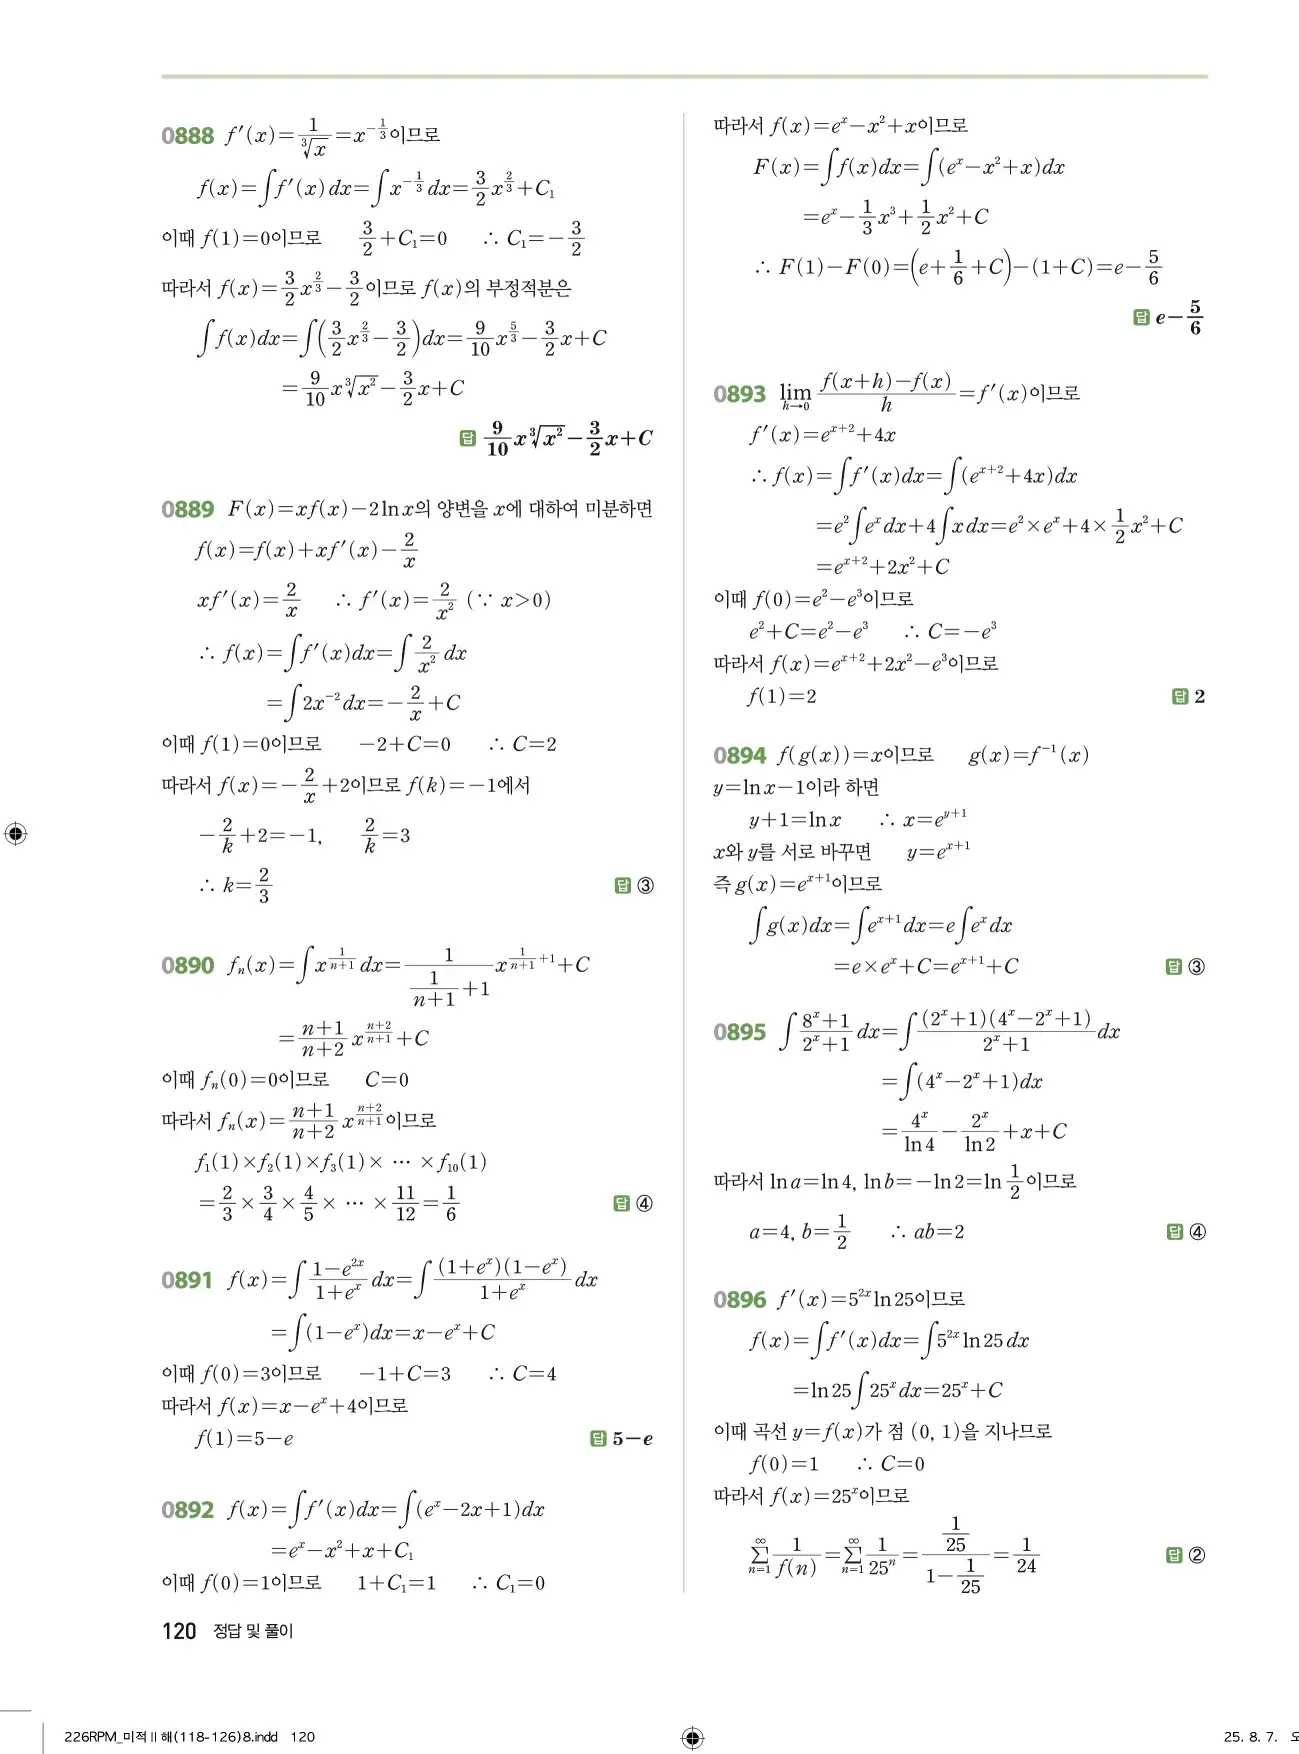 0888 f'(x)=1/∛x=x^(-1/3)이므로
f(x)=∫f'(x)dx=∫x^(-1/3)dx=3/2 x^(2/3)+C₁
이때 f(1)=0이므로 3/2+C₁=0 ∴ C₁=-3/2
따라서 f(x)=3/2 x^(2/3)-3/2이므로 f(x)의 부정적분은
∫f(x)dx=∫(3/2 x^(2/3)-3/2)dx=9/10 x^(5/3)-3/2 x+C
=9/10 x∛x²-3/2 x+C
답 9/10 x∛x²-3/2 x+C
0889 F(x)=xf(x)-2lnx의 양변을 x에 대하여 미분하면
f(x)=f(x)+xf'(x)-2/x
xf'(x)=2/x ∴ f'(x)=2/x² (∵ x>0)
∴ f(x)=∫f'(x)dx=∫2/x² dx
=∫2x⁻²dx=-2/x+C
이때 f(1)=0이므로 -2+C=0 ∴ C=2
따라서 f(x)=-2/x+2이므로 f(k)=-1에서
-2/k+2=-1, 2/k=3
∴ k=2/3 답 ③
0890 fₙ(x)=∫x^(1/(n+1))dx=1/(1/(n+1)+1) x^(1/(n+1)+1)+C
=(n+1)/(n+2) x^((n+2)/(n+1))+C
이때 fₙ(0)=0이므로 C=0
따라서 fₙ(x)=(n+1)/(n+2) x^((n+2)/(n+1))이므로
f₁(1)×f₂(1)×f₃(1)× … ×f₁₀(1)
=2/3×3/4×4/5× … ×11/12=1/6 답 ④
0891 f(x)=∫(1-e^(2x))/(1+e^x) dx=∫(1+e^x)(1-e^x)/(1+e^x) dx
=∫(1-e^x)dx=x-e^x+C
이때 f(0)=3이므로 -1+C=3 ∴ C=4
따라서 f(x)=x-e^x+4이므로
f(1)=5-e 답 5-e
0892 f(x)=∫f'(x)dx=∫(e^x-2x+1)dx
=e^x-x²+x+C₁
이때 f(0)=1이므로 1+C₁=1 ∴ C₁=0
따라서 f(x)=e^x-x²+x이므로
F(x)=∫f(x)dx=∫(e^x-x²+x)dx
=e^x-1/3 x³+1/2 x²+C
∴ F(1)-F(0)=(e+1/6+C)-(1+C)=e-5/6
답 e-5/6
0893 lim h→0 (f(x+h)-f(x))/h=f'(x)이므로
f'(x)=e^(x+2)+4x
∴ f(x)=∫f'(x)dx=∫(e^(x+2)+4x)dx
=e²∫e^x dx+4∫xdx=e²×e^x+4×1/2 x²+C
=e^(x+2)+2x²+C
이때 f(0)=e²-e³이므로
e²+C=e²-e³ ∴ C=-e³
따라서 f(x)=e^(x+2)+2x²-e³이므로
f(1)=2 답 2
0894 f(g(x))=x이므로 g(x)=f⁻¹(x)
y=lnx-1이라 하면
y+1=lnx ∴ x=e^(y+1)
x와 y를 서로 바꾸면 y=e^(x+1)
즉 g(x)=e^(x+1)이므로
∫g(x)dx=∫e^(x+1)dx=e∫e^x dx
=e×e^x+C=e^(x+1)+C 답 ③
0895 ∫(8^x+1)/(2^x+1) dx=∫(2^x+1)(4^x-2^x+1)/(2^x+1) dx
=∫(4^x-2^x+1)dx
=4^x/ln4-2^x/ln2+x+C
따라서 lna=ln4, lnb=-ln2=ln 1/2이므로
a=4, b=1/2 ∴ ab=2 답 ④
0896 f'(x)=5^(2x)ln25이므로
f(x)=∫f'(x)dx=∫5^(2x)ln25dx
=ln25∫25^x dx=25^x+C
이때 곡선 y=f(x)가 점 (0, 1)을 지나므로
f(0)=1 ∴ C=0
따라서 f(x)=25^x이므로
∑(n=1,∞) 1/f(n)=∑(n=1,∞) 1/25ⁿ=(1/25)/(1-1/25)=1/24 답 ②
120 정답 및 풀이
226RPM_미적Ⅱ해(118-126)8.indd 120
25. 8. 7.